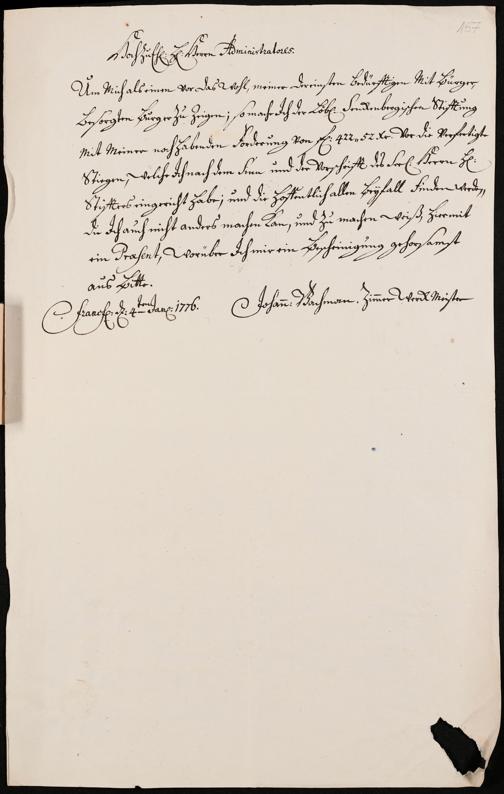 157
Hochzuehr: H: Herrn Administratores.
Um Mich als einen vor das Wohl, meiner dereinsten bedürfftigen Mit Bürger
besorgten Bürger zu Zeigen; so mach Ich der Löbl: Senckenbergischen Stifftung
mit Meiner noch habenden Forderung von f: 422 „ 52 Xr vor die verfertigte
Stiegen, welche Ich nach dem Sinn und der Vorschrifft des Seel: Herrn H:
Stiffters eingericht habe, und die hoffentlich allen Beyfall finden werden,
die Ich auch nicht anders machen kan, und zu machen weiß, hiermit
ein Præsent, worüber Ich mir ein Bescheinigung gehorsamst
aus Bitte.
Francf: d: 4ten Janr: 1776. Johann: Bachman. Zimmer Werck Meister